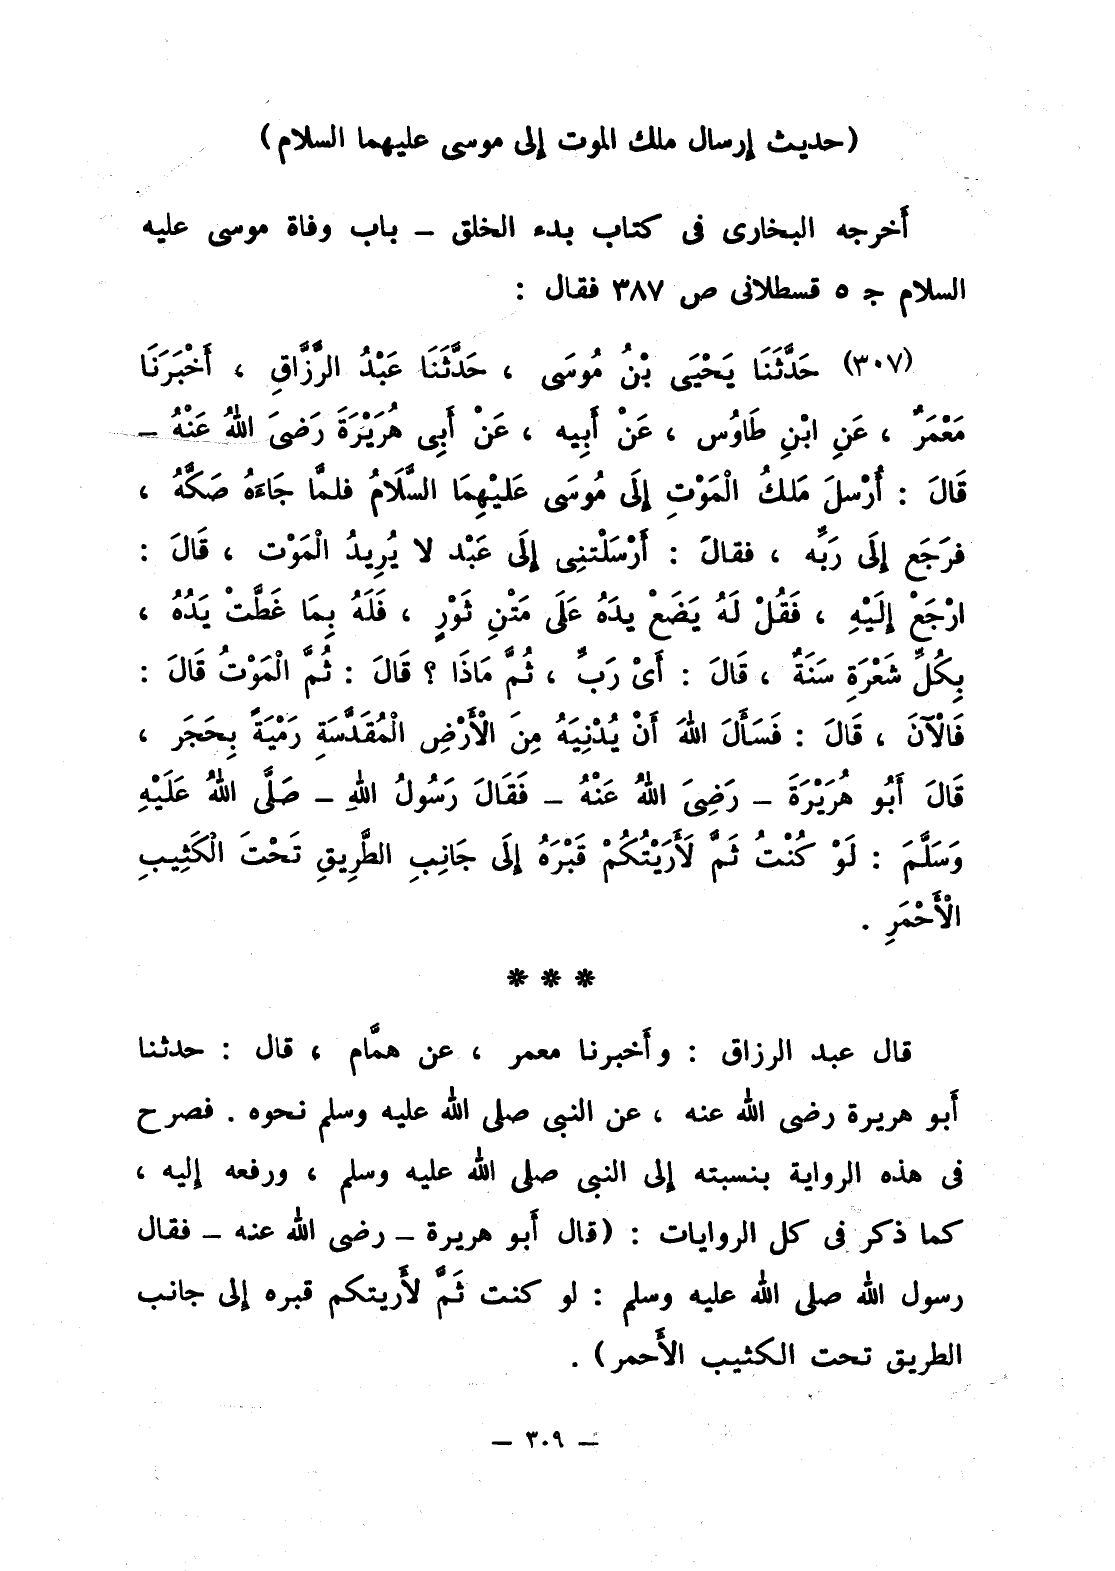 (حديث إرسال ملك الموت إلى موسى عليهما السلام)
أَخرجه البخارى فى كتاب بدء الخلق – باب وفاة موسى عليه
السلام جـ ٥ قسطلانى ص ٣٨٧ فقال :
(٣٠٧) حَدَّثَنَا يَحْيَى بْنُ مُوسَى ، حَدَّثَنَا عَبْدُ الرَّزَّاقِ ، أَخْبَرَنَا
مَعْمَرٌ ، عَنِ ابْنِ طَاوُس ، عَنْ أَبِيه ، عَنْ أَبِى هُرَيْرَةَ رَضىَ اللهُ عَنْهُ –
قَالَ : أُرْسلَ مَلكُ الْمَوْتِ إِلَى مُوسَى عَليْهِمَا السَّلَامُ فلمَّا جَاءَهُ صَكَّهُ ،
فرَجَع إِلَى رَبِّه ، فقالَ : أَرْسَلْتنِى إِلَى عَبْد لا يُرِيدُ الْمَوْت ، قَالَ :
ارْجَعْ إِلَيْهِ ، فَقُلْ لَهُ يَضَعْ يدَهُ عَلَى مَتْنِ ثَوْرٍ ، فَلَهُ بِمَا غَطَّتْ يَدُهُ ،
بِكُلِّ شَعْرَةِ سَنَةٌ ، قَالَ : أَىْ رَبِّ ، ثُمَّ مَاذَا ؟ قَالَ : ثُمَّ الْمَوْتُ قَالَ :
فَالْآنَ ، قَالَ : فَسَأَلَ اللهَ أَنْ يُدْنِيَهُ مِنَ الْأَرْضِ الْمُقَدَّسَةِ رَمْيَةً بِحَجَر ،
قَالَ أَبُو هُرَيْرَةَ – رَضِىَ اللهُ عَنْهُ – فَقَالَ رَسُولُ اللهِ – صَلَّى اللهُ عَلَيْهِ
وَسَلَّمَ : لَوْ كُنْتُ ثَمَّ لَأَرَيْتُكُمْ قَبْرَهُ إِلَى جَانِبِ الطَّرِيقِ تَحْتَ الْكَثِيبِ
الْأَحْمَرِ .
* * *
قال عبد الرزاق : وأَخبرنا معمر ، عن همَّام ، قال : حدثنا
أَبو هريرة رضى الله عنه ، عن النبى صلى الله عليه وسلم نحوه . فصرح
فى هذه الرواية بنسبته إلى النبى صلى الله عليه وسلم ، ورفعه إليه ،
كما ذكر فى كل الروايات : (قال أَبو هريرة – رضى الله عنه – فقال
رسول الله صلى الله عليه وسلم : لو كنت ثَمَّ لأَريتكم قبره إلى جانب
الطريق تحت الكثيب الأَحمر) .
– ٣٠٩ –